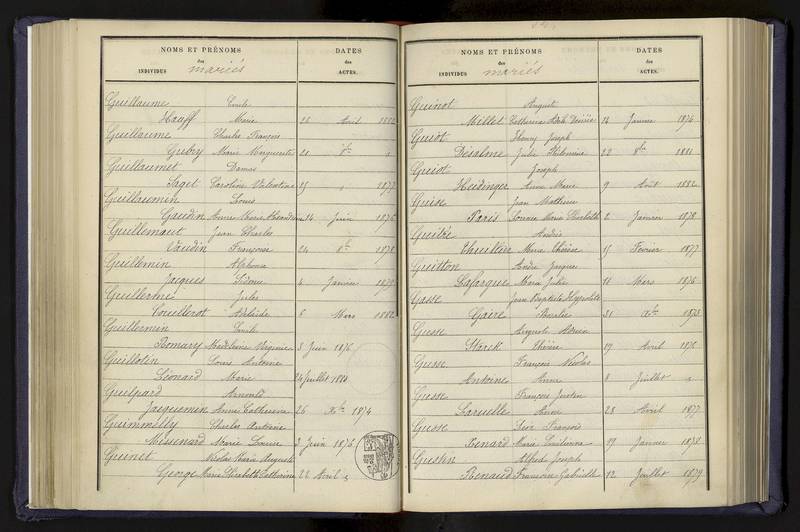 NOMS ET PRÉNOMS
des
INDIVIDUS mariés
DATES
des
ACTES.
Guillaume Emile
Haaff Marie 25 Avril 1882
Guillaume Charles François
Gubry Marie Marguerite 21 8bre "
Guillaumet Damas
Saget Caroline Valentine 15 " 1877
Guillaumin Louis
Gaudin Anne Marie 14 Juin 1876
Guillemaut Jean Charles
Vaudin Françoise 24 8bre 1878
Guillemin Alphonse
Jacques Sidonie 4 Janvier 1879
Guillerme Jules
Couillerot Adélaïde 8 Mars 1882
Guillermin Emile
Romary Madeleine Virginie 3 Juin 1876
Guillotin Louis Antoine
Léonard Marie 24 Juillet 1880
Guilpard Arnould
Jacquemin Anne Catherine 26 Xbre 1874
Guimmelly Charles Antoine
Messenard Marie Louise 3 Juin 1876
Guinet Nicolas Marie Auguste
George Marie Elisabeth Catherine 22 Avril "
NOMS ET PRÉNOMS
des
INDIVIDUS mariés
DATES
des
ACTES.
Guinot August
Millet Catherine Désirée 14 Janvier 1876
Guiot Henry Joseph
Desalme Julie Philomène 22 8bre 1881
Guiot Joseph
Heidinger Anne Marie 9 Août 1882
Guise Jean Mathieu
Paris Marie Elisabeth 2 Janvier 1878
Guitré André
Chuillon Marie Thérèse 15 Février 1877
Guitton André Jacques
Lafarque Maria Julie 11 Mars 1876
Gusse Jean Baptiste Hyppolite
Gaire Rosalie 31 Xbre 1875
Gusse Auguste
Starck Thérèse 19 Avril 1876
Gusse François Nicolas
Antoine Anne 8 Juillet "
Gusse François Justin
Laruelle Anne 28 Avril 1877
Gusse Léon François
Benard Maria 19 Janvier 1878
Gustin Alfred Joseph
Renaud Françoise Gabrielle 12 Juillet 1879